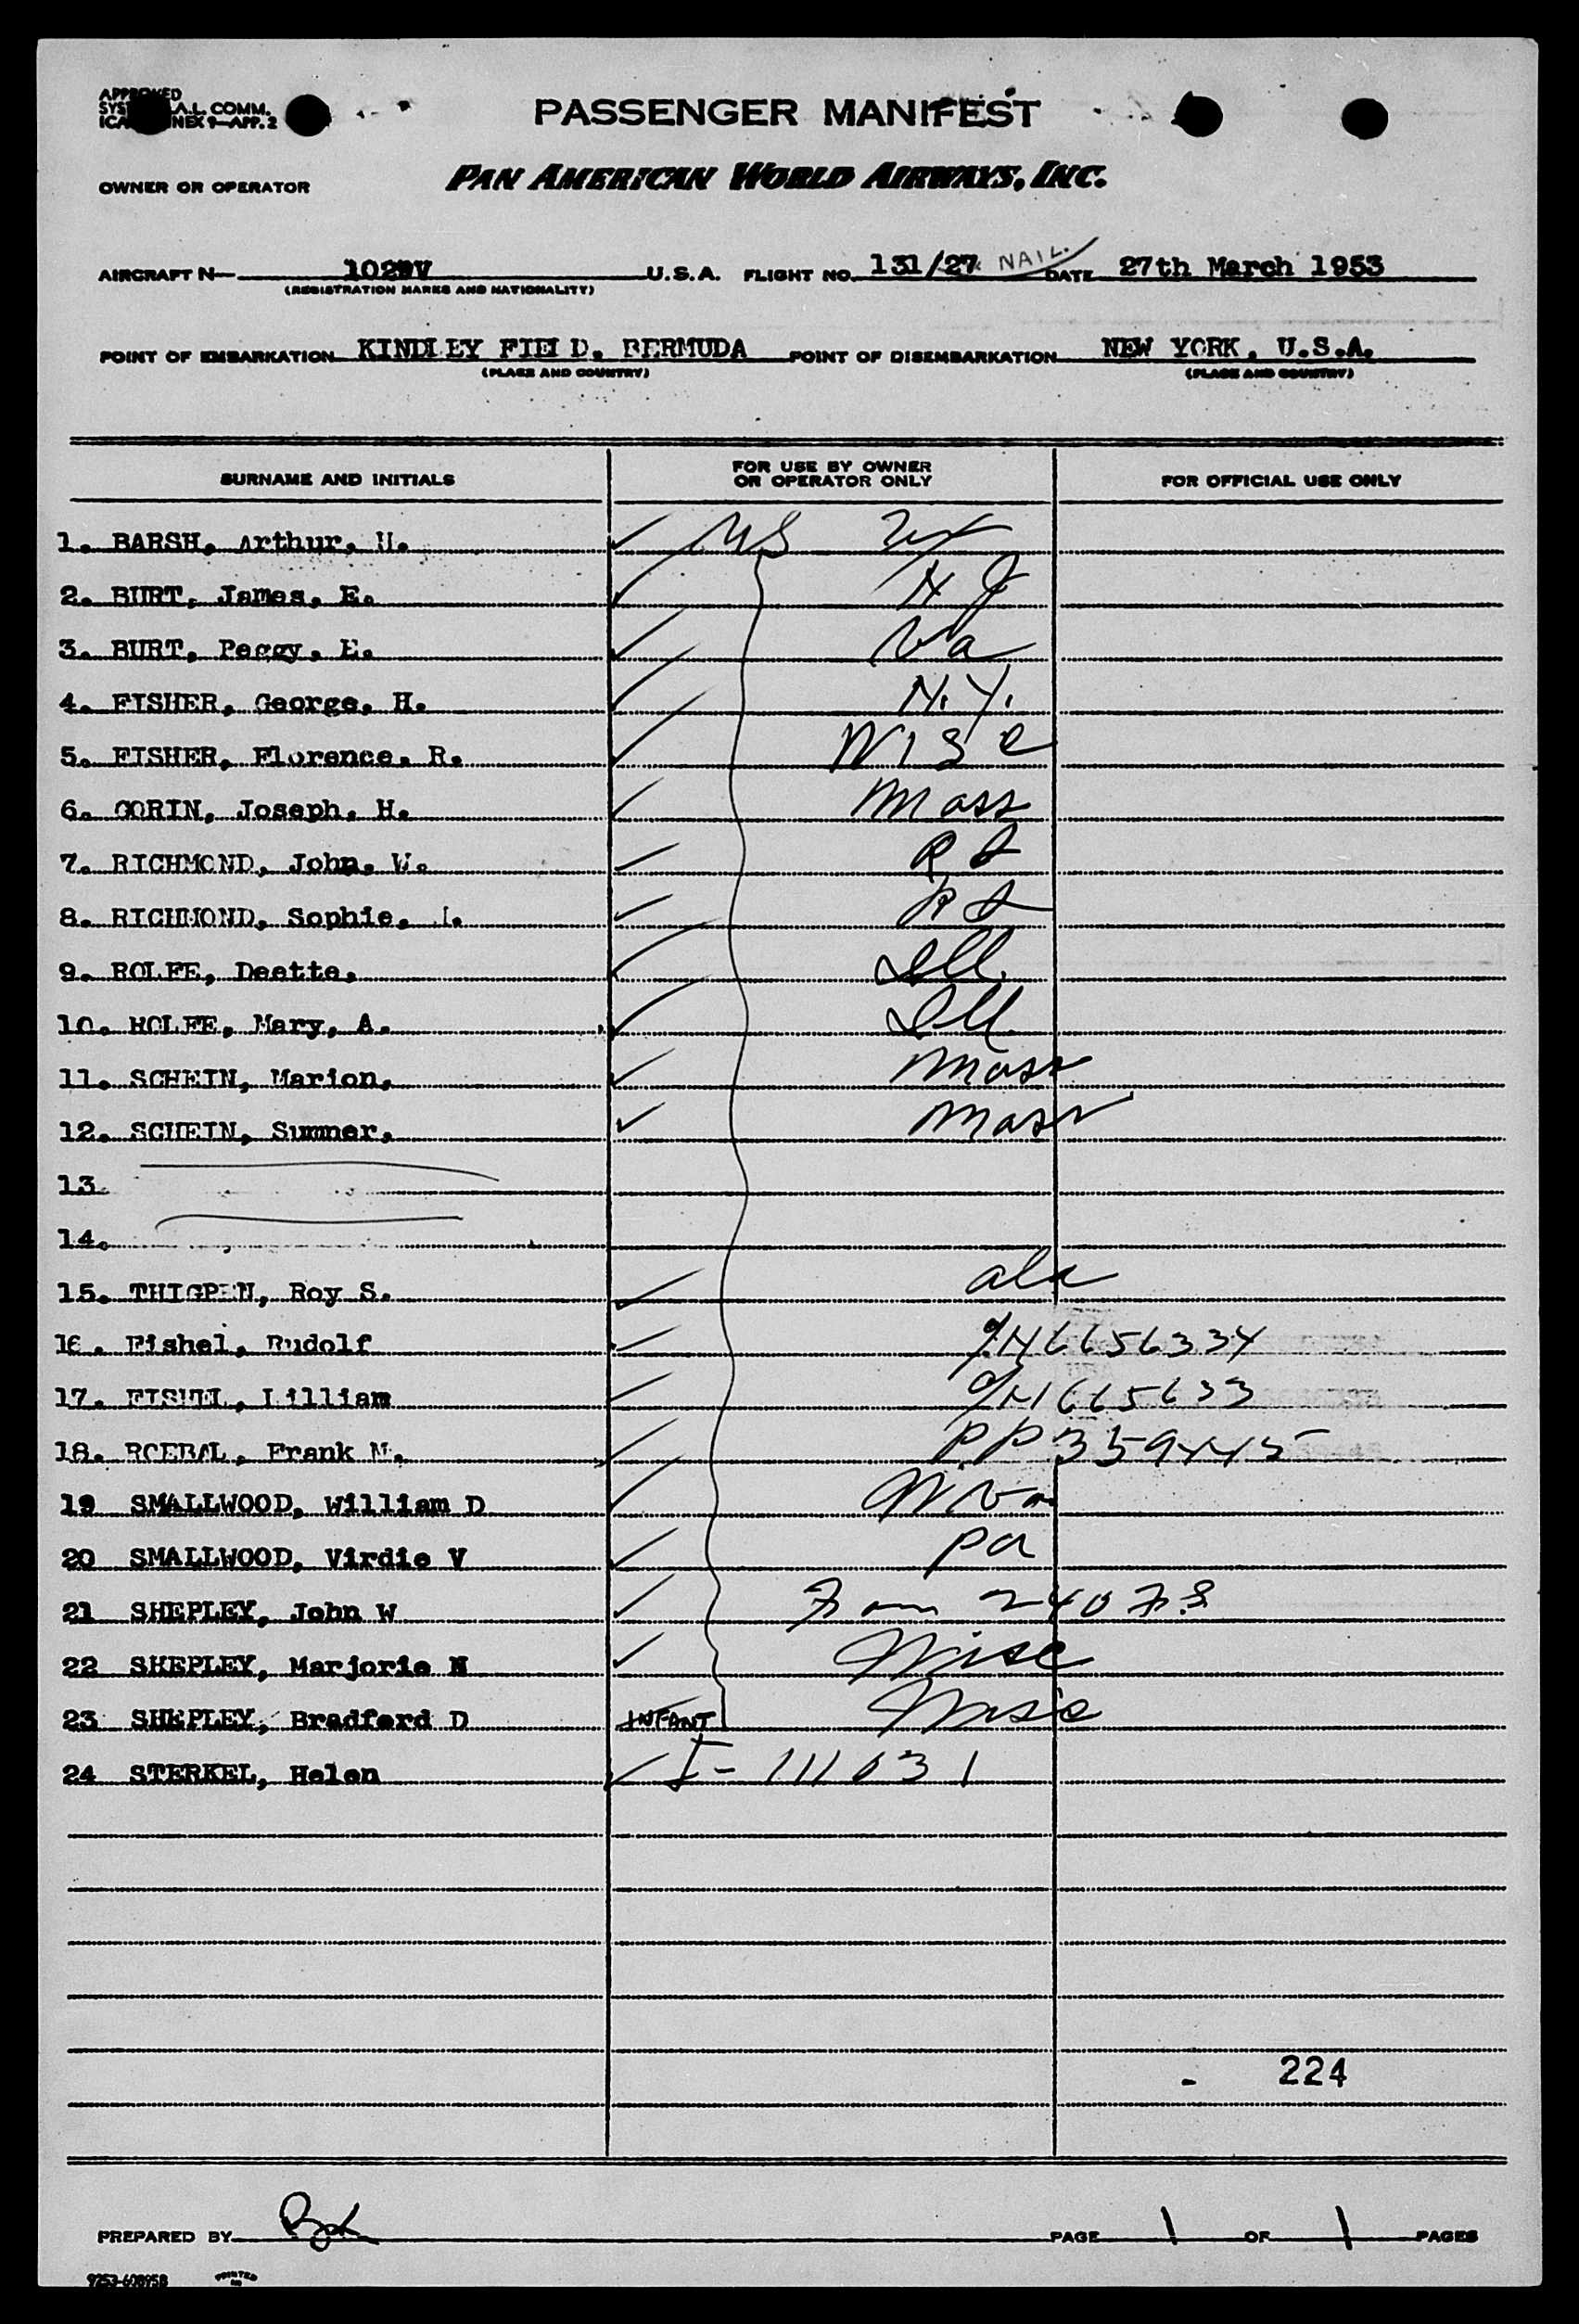 APPROVED
A.L. COMM.
ICA NEX 9—APP. 2
PASSENGER MANIFEST
OWNER OR OPERATOR PAN AMERICAN WORLD AIRWAYS, INC.
AIRCRAFT N— 1029V U.S.A. FLIGHT NO. 131/27 NAIL. DATE 27th March 1953
(REGISTRATION MARKS AND NATIONALITY)
POINT OF EMBARKATION KINDLEY FIELD, BERMUDA POINT OF DISEMBARKATION NEW YORK, U.S.A.
(PLACE AND COUNTRY) (PLACE AND COUNTRY)
SURNAME AND INITIALS FOR USE BY OWNER OR OPERATOR ONLY FOR OFFICIAL USE ONLY
1. BARSH, Arthur, U. US
2. BURT, James, E. N J
3. BURT, Peggy, E. Va
4. FISHER, George, H. N.Y.
5. FISHER, Florence, R. Wisc
6. GORIN, Joseph, H. Mass
7. RICHMOND, John, W. R I
8. RICHMOND, Sophie, R I
9. ROLFE, Deette, Ill
10. ROLFE, Mary, A. Ill
11. SCHEIN, Marion, Mass
12. SCHEIN, Sumner, Mass
13.
14.
15. THIGPEN, Roy S. ala
16. Fishel, Rudolf 6656334
17. FISHEL, Lilliam 665633
18. ROEBAL, Frank M. PP 359445
19 SMALLWOOD, William D W Va
20 SMALLWOOD, Virdie V Pa
21 SHEPLEY, John W
22 SHEPLEY, Marjorie N Wisc
23 SHEPLEY, Bradford D INFANT Wisc
24 STERKEL, Helen I- 111031
- 224
PREPARED BY PAGE 1 OF 1 PAGES
9253-608958 PRINTED